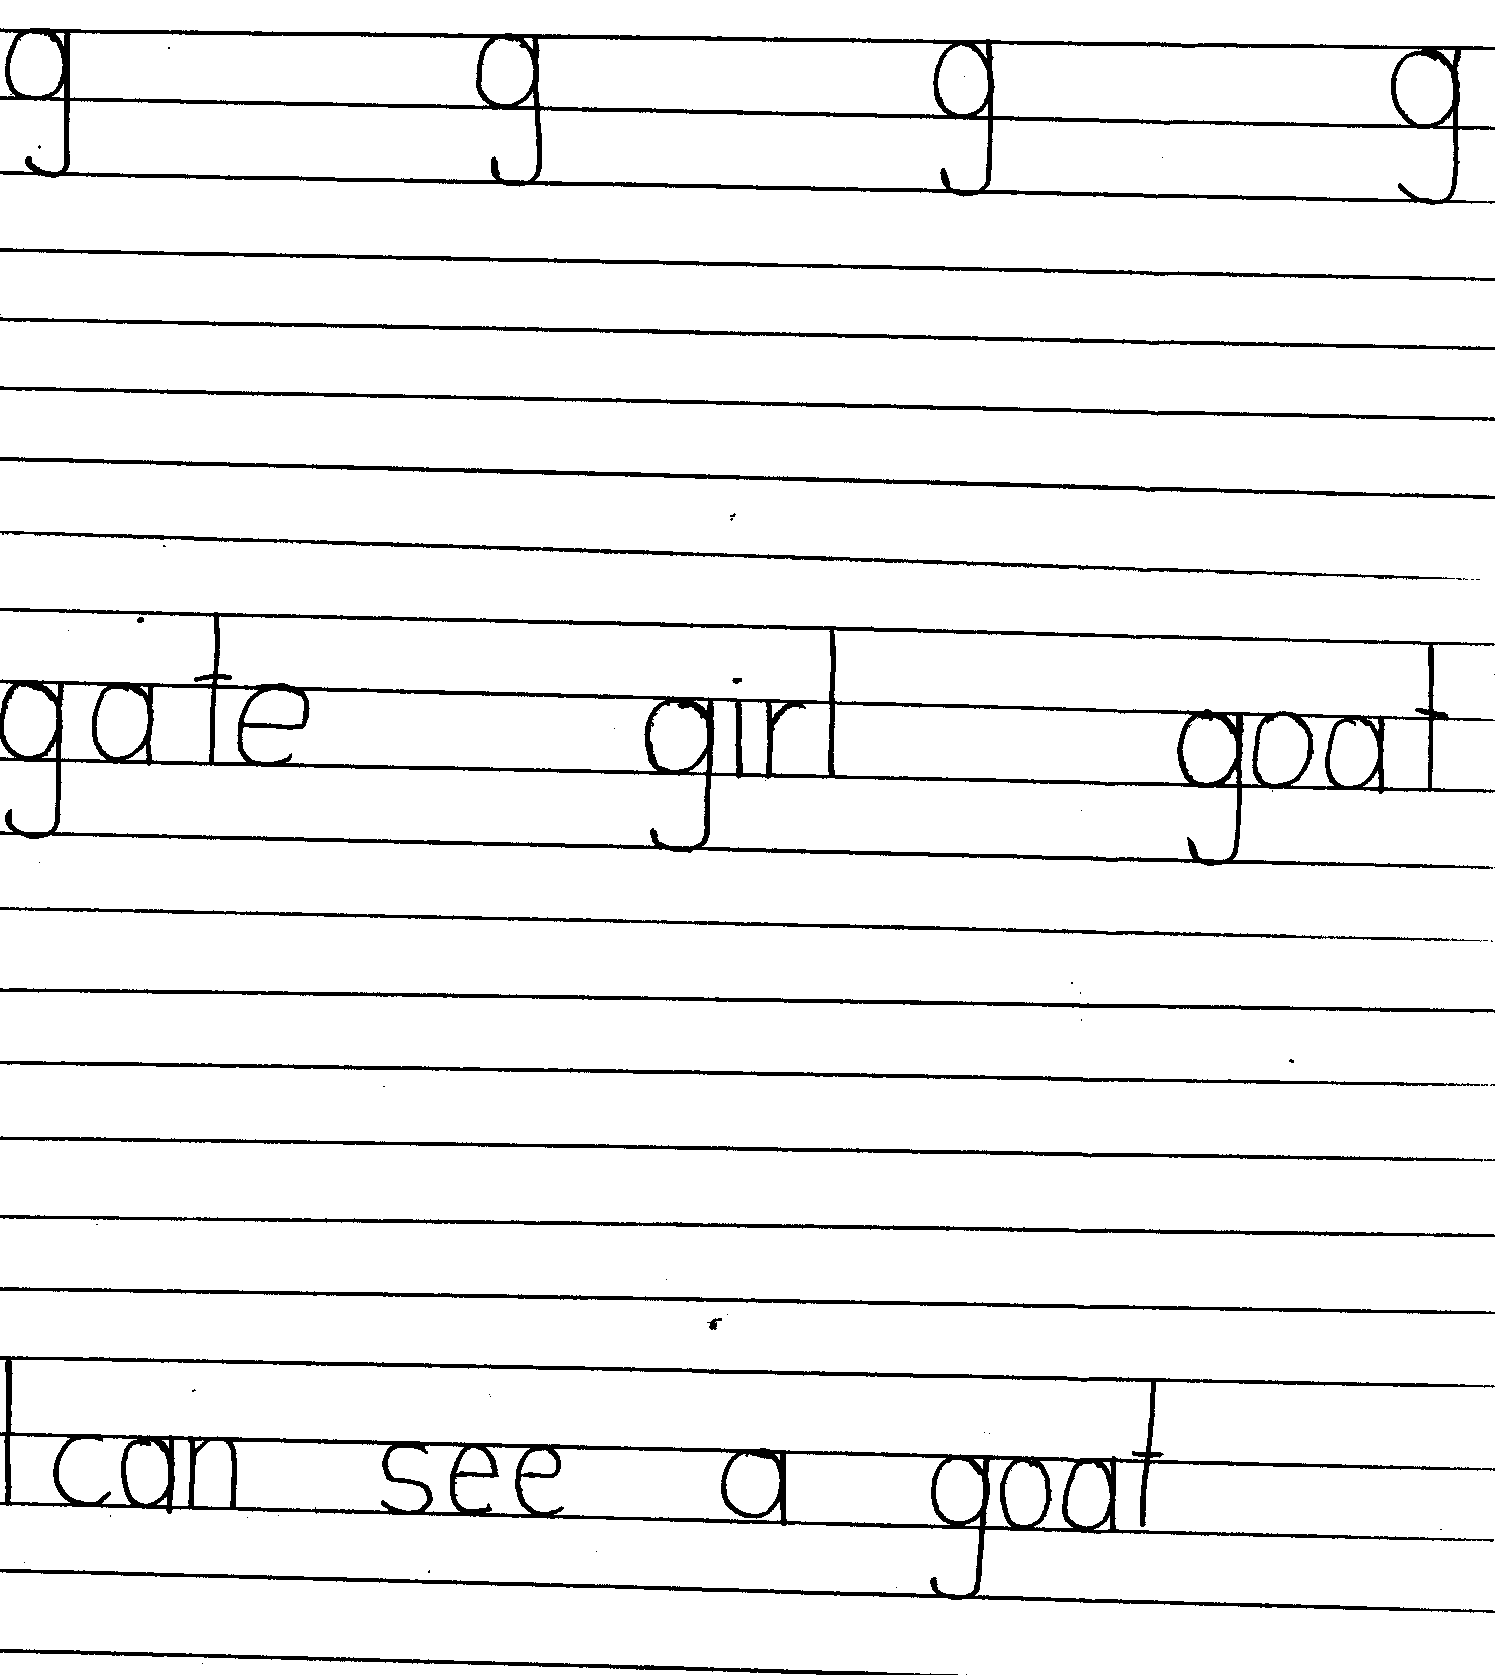 g g g g
gate girl goat
I can see a goat